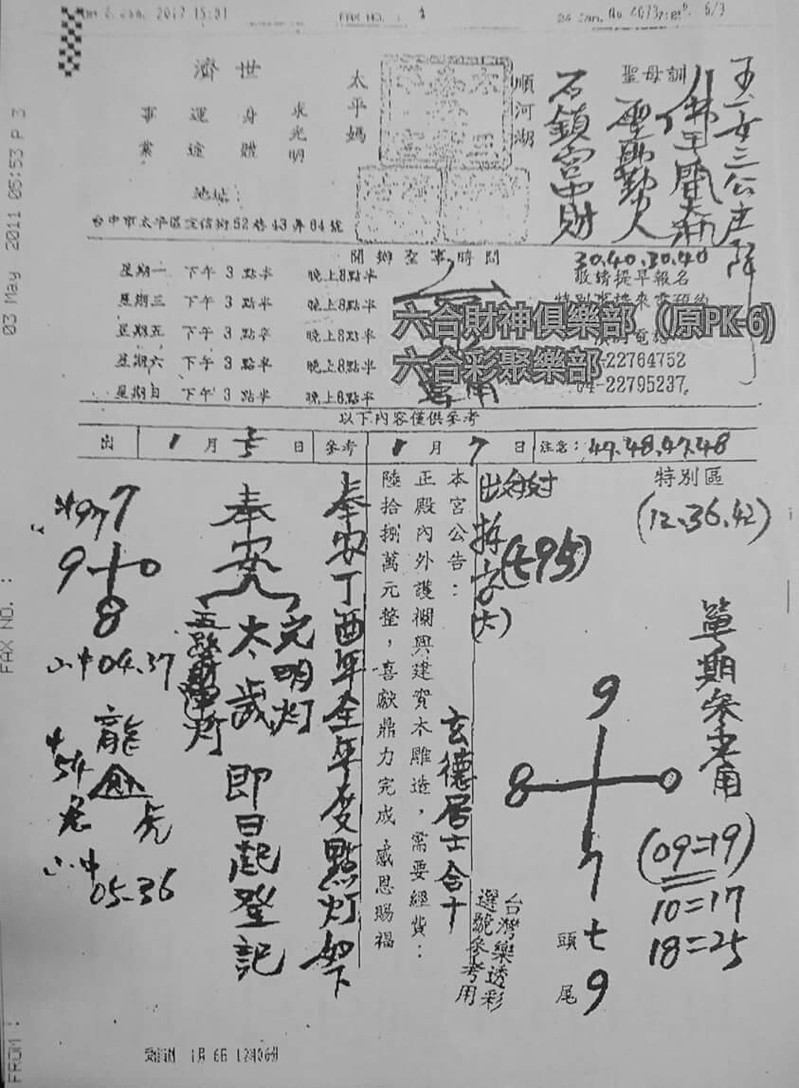 2017 15:01
FAX NO. :
6/3
濟世
事業 運途 身體 求光明
太平媽
順河湖
聖母訓
地址
台中市太平區宜信街52巷43弄64號
開辦聖事時間
30.40.30.40
敬請提早報名
星期一 下午 3 點半 晚上8點半
星期三 下午 3 點半 晚上8點半
星期五 下午 3 點半 晚上8點半
星期六 下午 3 點半 晚上8點半
星期日 下午 3 點半 晚上8點半
六合財神俱樂部 (原PK-6)
六合彩聚樂部
-22764752
04-22795237
以下內容僅供參考
出 1 月 5 日 參考 1 月 7 日 注意: 47.48.47.48
特別區
(12.36.42)
單期參考用
9
8 0
7
(09=19)
10=17
18=25
頭 七
尾 9
台灣樂透彩
選號參考用
(七95)
本宮公告:
正殿內外護欄興建資木雕造,需要經費:
陸拾捌萬元整,喜獻鼎力完成 感恩賜福
玄德居士合十
奉安丁酉年全年度點灯如下
奉安
光明灯
太歲
五路財神灯
即日起登記
7
9 0
8
04.37
龍
虎
05-36
03 May 2011 05:53 P 3
FAX NO. :
FROM :